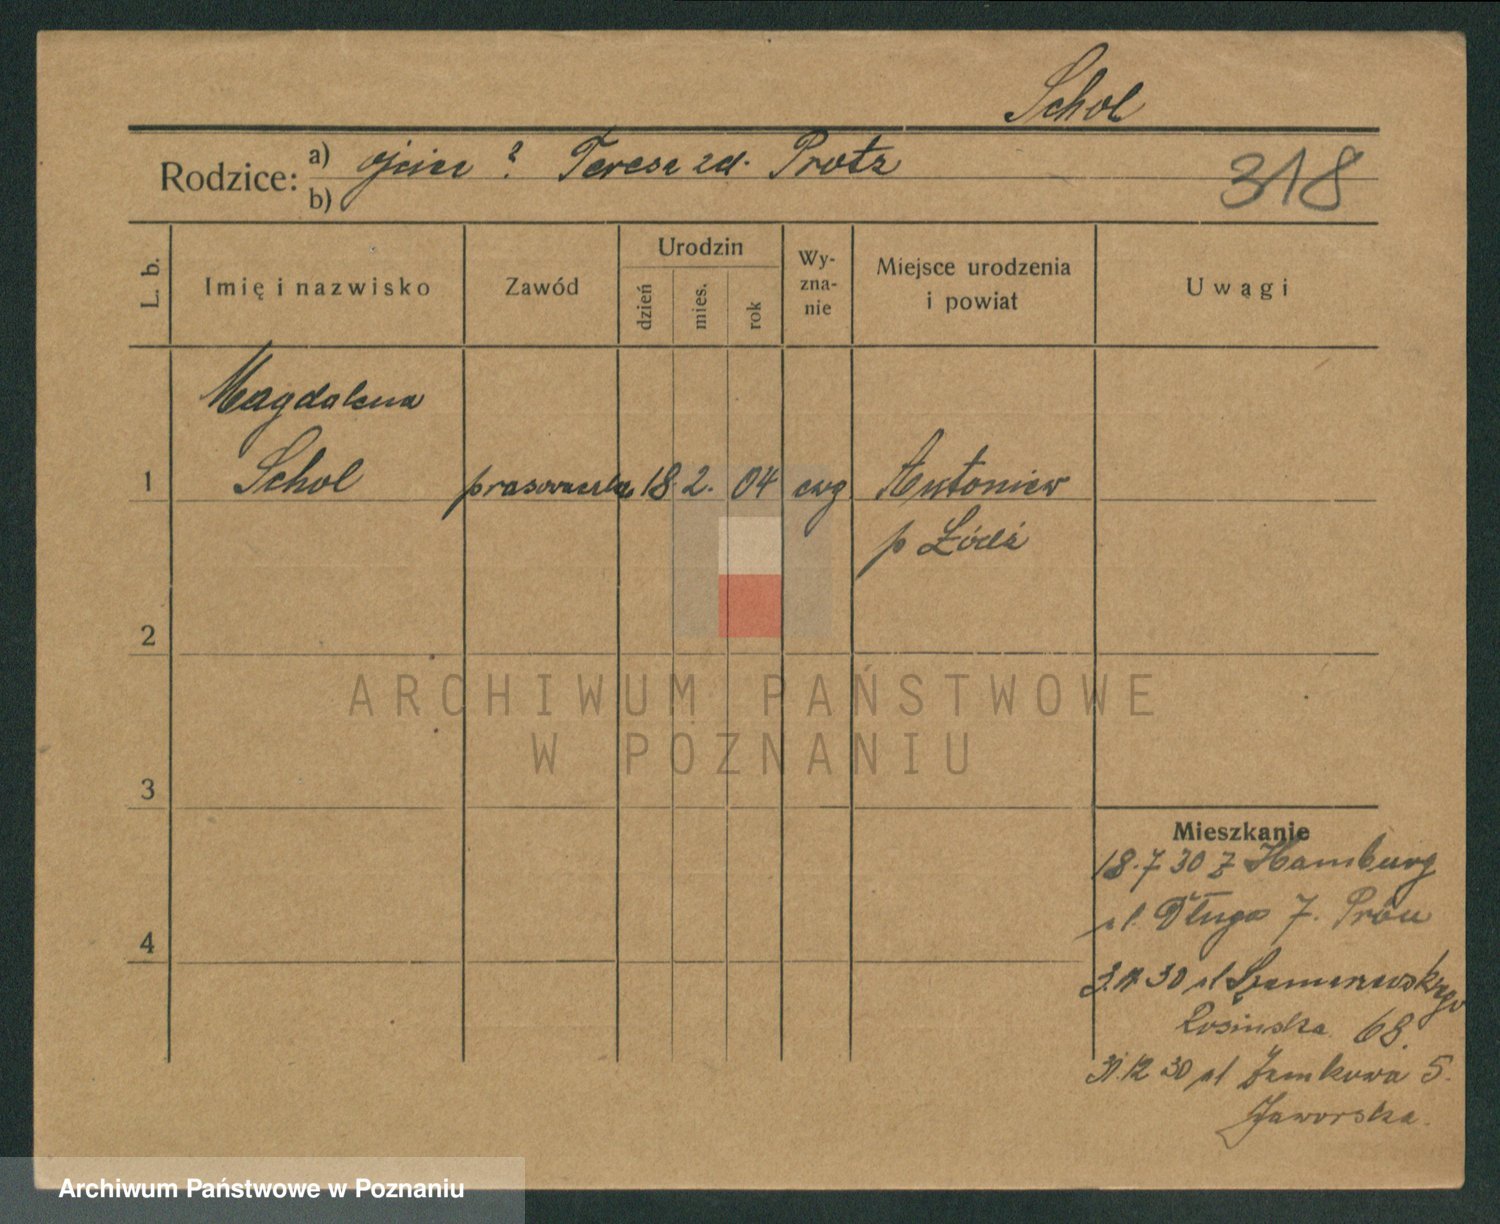 Schol
Rodzice: a) ojciec ? Teresa zd. Protz
b)
318
L. b.
Imię i nazwisko
Zawód
Urodzin
dzień
mies.
rok
Wy-
zna-
nie
Miejsce urodzenia
i powiat
Uwagi
Magdalena
1 Schol prasowaczka 18 2. 04 ewg Antoniew
p Łódź
2
3
4
Mieszkanie
18.7 30 z Hamburg
ul. Długa 7.
30 ul
68.
31.12 30 ul Zamkowa 5.
Jaworska.
ARCHIWUM PAŃSTWOWE
W POZNANIU
Archiwum Państwowe w Poznaniu